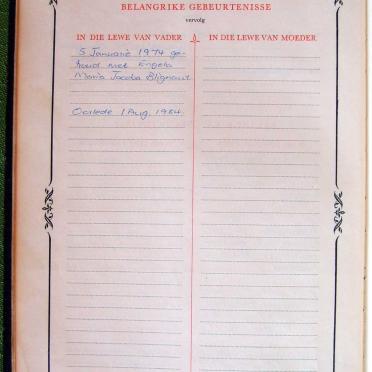 BELANGRIKE GEBEURTENISSE
vervolg
IN DIE LEWE VAN VADER
IN DIE LEWE VAN MOEDER
5 Januarie 1974 ge-
troud met Engela
Maria Jacoba Blignaut.
Oorlede 1 Aug. 1984.